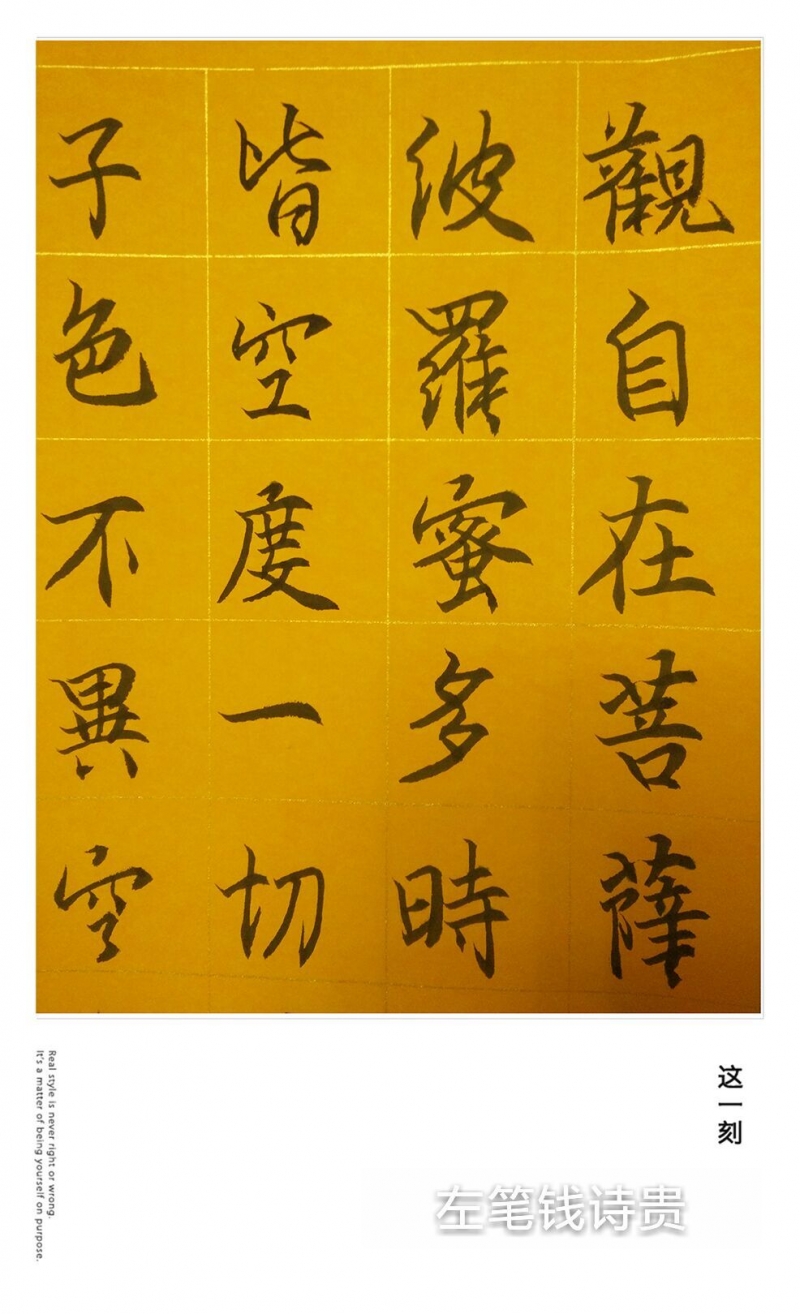 觀自在菩薩
波羅蜜多時
皆空度一切
子色不異空
这一刻
左笔钱诗贵
Real style is never right or wrong.
It's a matter of being yourself on purpose.